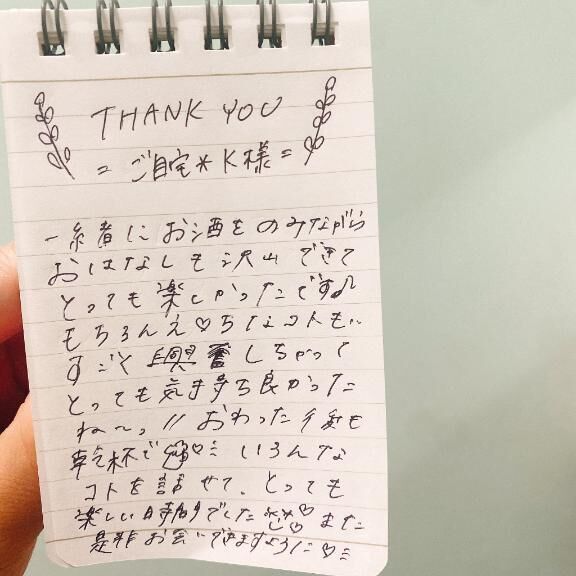 THANK YOU
= ご自宅*K様 =
一緒に お酒を のみながら
おはなしも 沢山 できて
とっても 楽しかったです♪
もちろんえ♡ちなコトも..
すごく 興奮 しちゃって
とっても 気持ち良かった
ね〜。// おわった後も
乾杯で いろんな
コトを 話せて、とっても
楽しい時間でした ♡ また
是非 お会いできますように♡